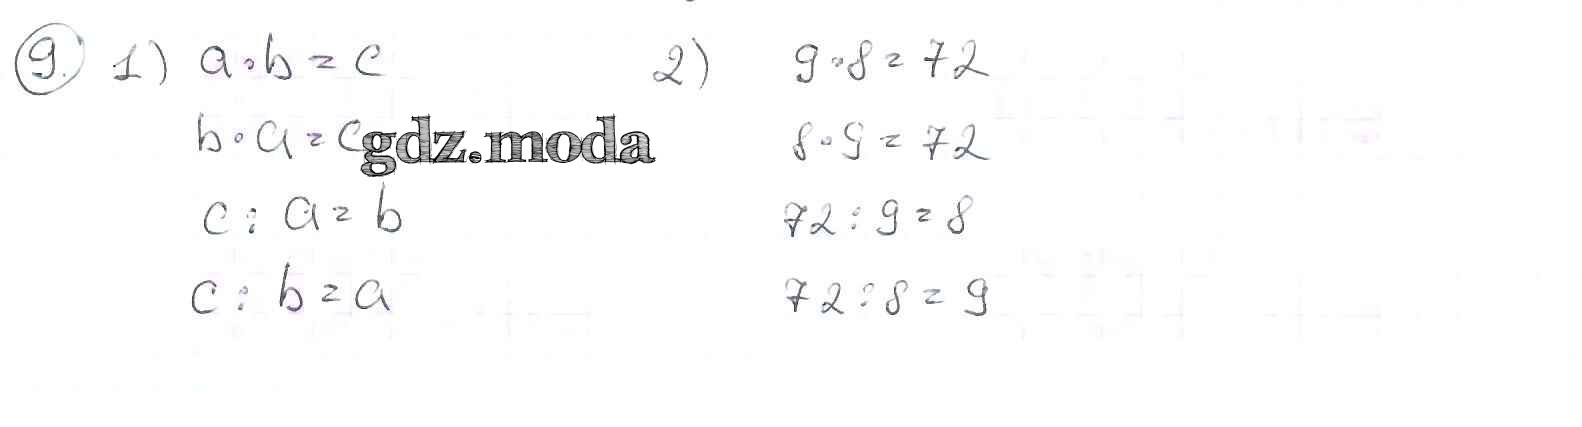 9. 1) a · b = c
b · a = c
gdz.moda
c : a = b
c : b = a
2) 9 · 8 = 72
8 · 9 = 72
72 : 9 = 8
72 : 8 = 9